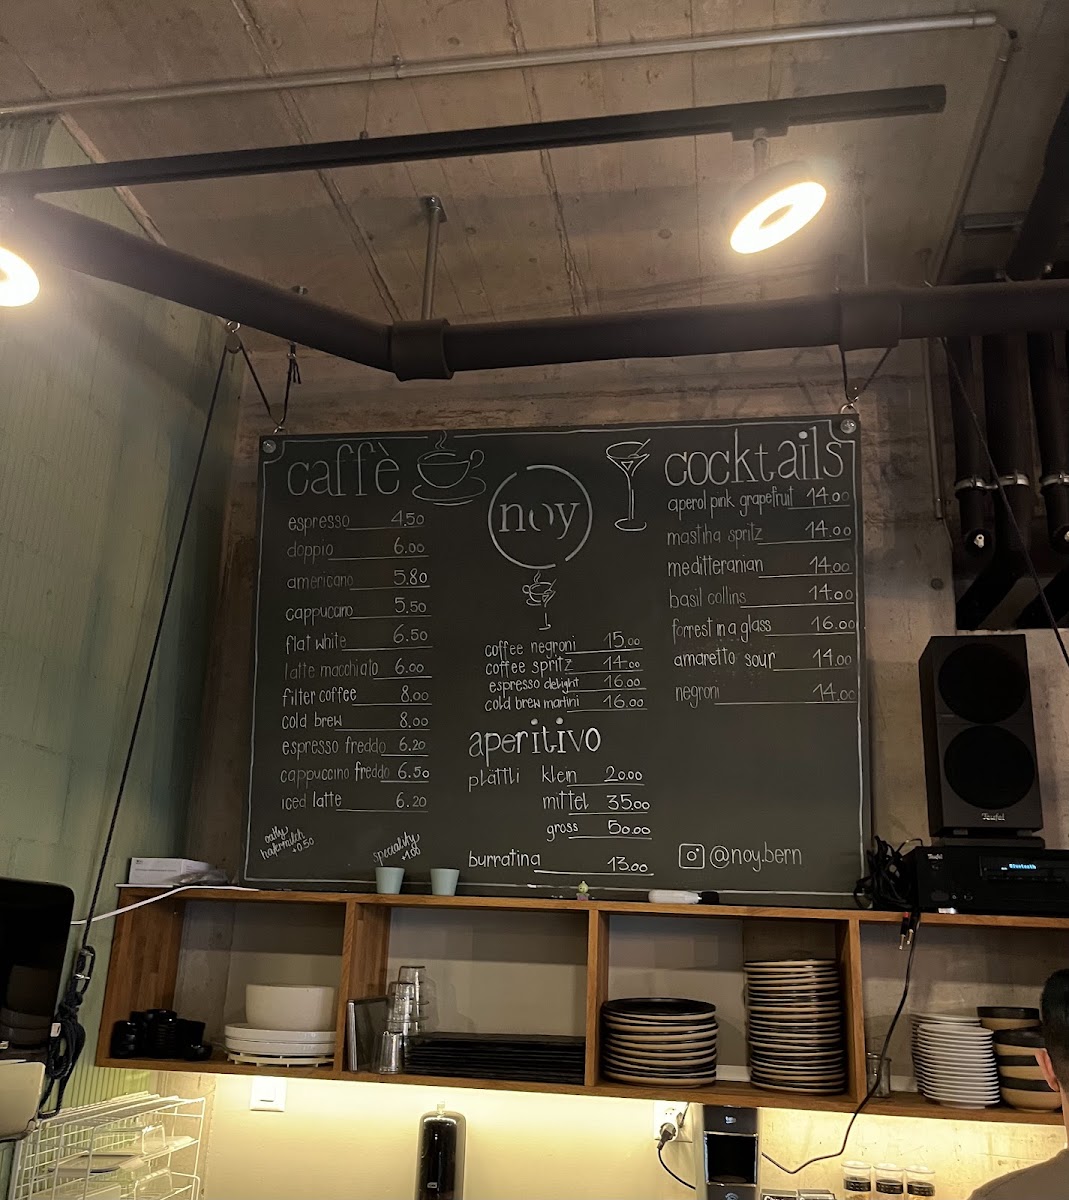 caffè
espresso 4.50
doppio 6.00
americano 5.80
cappuccino 5.50
flat white 6.50
latte macchiato 6.00
filter coffee 8.00
cold brew 8.00
espresso freddo 6.20
cappuccino freddo 6.50
iced latte 6.20
oatly
hafermilch
+0.50
speciality
+1.00
noy
coffee negroni 15.00
coffee spritz 14.00
espresso delight 16.00
cold brew martini 16.00
aperitivo
plättli klein 20.00
mittel 35.00
gross 50.00
burratina 13.00
cocktails
aperol pink grapefruit 14.00
mastiha spritz 14.00
meditteranian 14.00
basil collins 14.00
forrest in a glass 16.00
amaretto sour 14.00
negroni 14.00
@noy.bern
Teufel
Teufel
Bluetooth